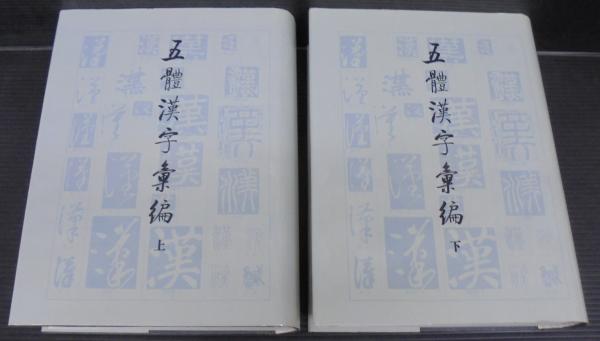 五體漢字彙編
上
五體漢字彙編
下